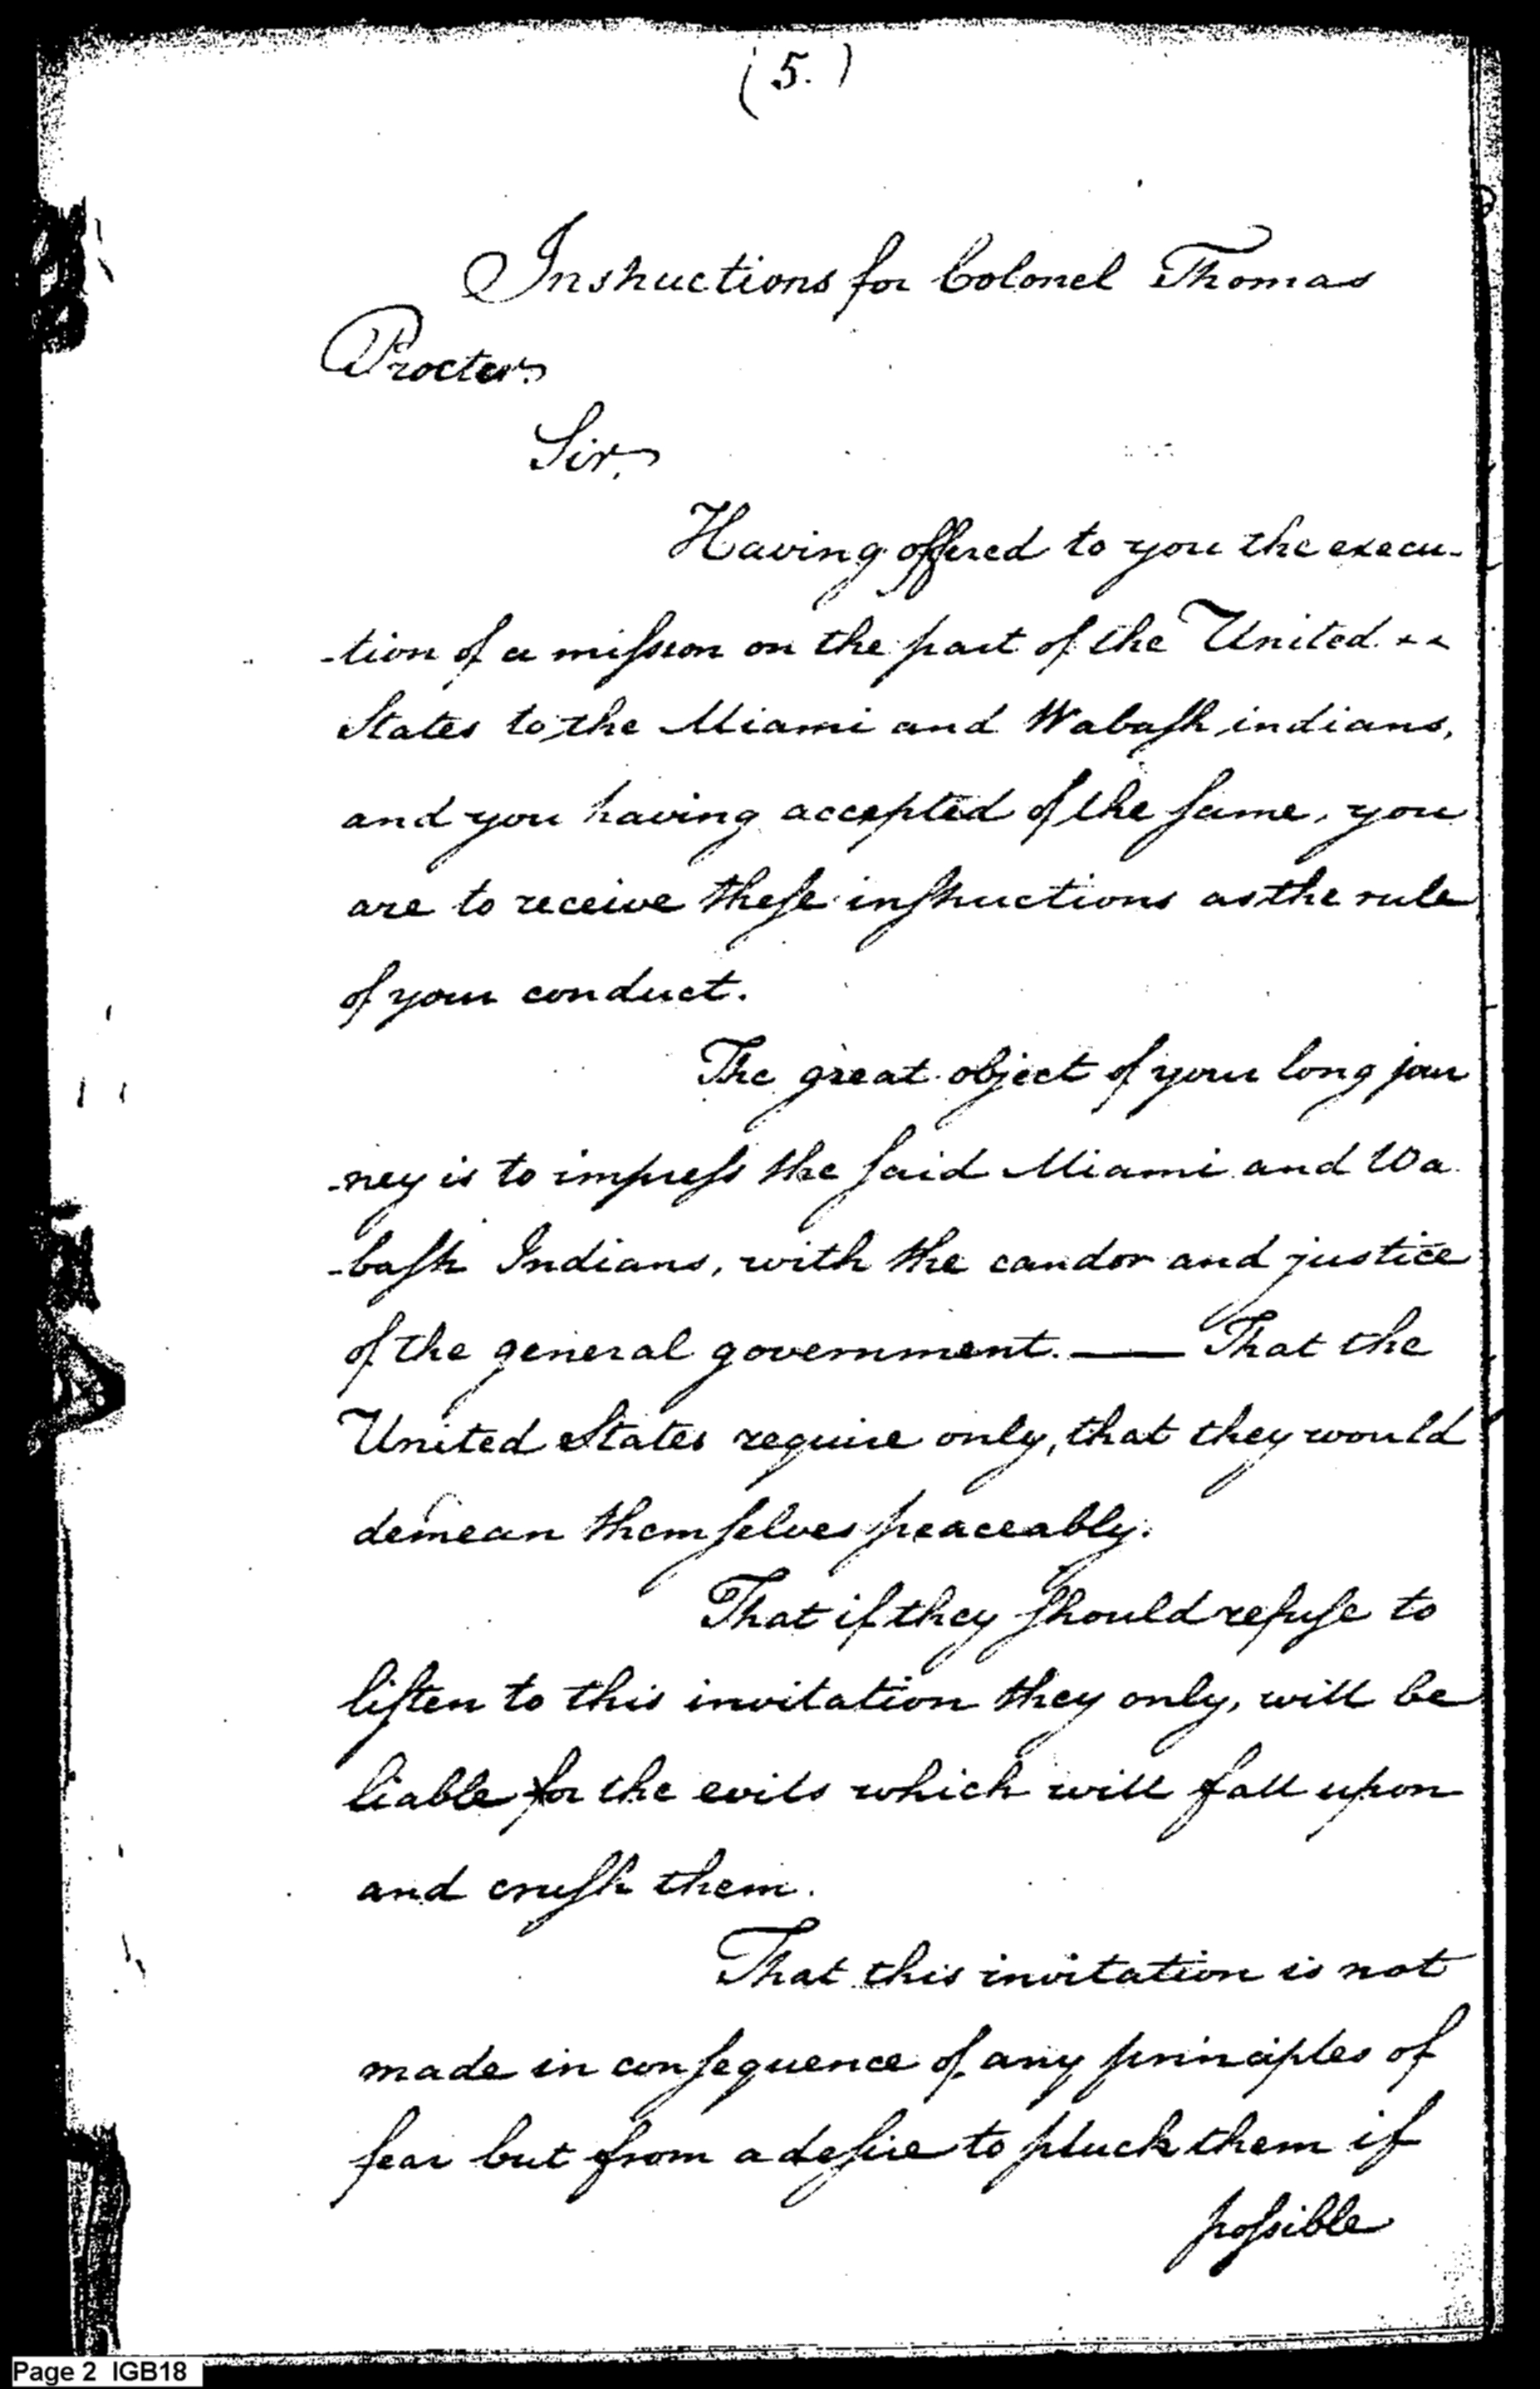 (5.)
Instructions for Colonel Thomas
Procter.
Sir,
Having offered to you the execu-
-tion of a mission on the part of the United
States to the Miami and Wabash indians,
and you having accepted of the same, you
are to receive these instructions as the rule
of your conduct.
The great object of your long jour
-ney is to impress the said Miami and Wa
-bash Indians, with the candor and justice
of the general government. — That the
United States require only, that they would
demean themselves peaceably.
That if they should refuse to
listen to this invitation they only, will be
liable for the evils which will fall upon
and crush them.
That this invitation is not
made in consequence of any principles of
fear but from a desire to pluck them if
possible
Page 2 IGB18